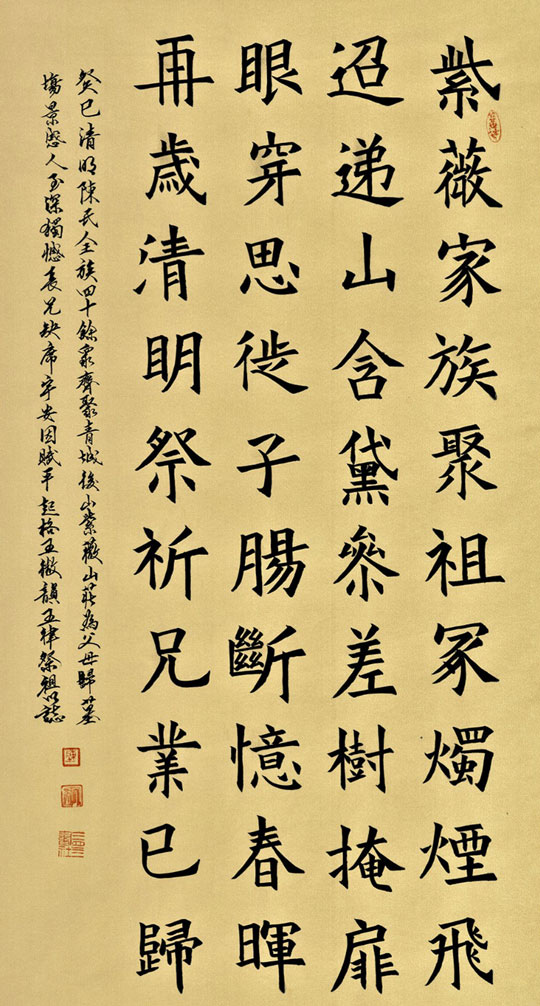 紫薇家族聚祖冢燭煙飛
迢递山含黛叅差樹掩扉
眼穿思徙子腸斷憶春暉
再歲清明祭祈兄業已歸
癸巳清明陳氏全族四十餘眾齊聚青城後山紫薇山莊為父母歸墓
塲景感人至深獨憾長兄缺席宇安因賦平起格五微韻五律祭祖以誌